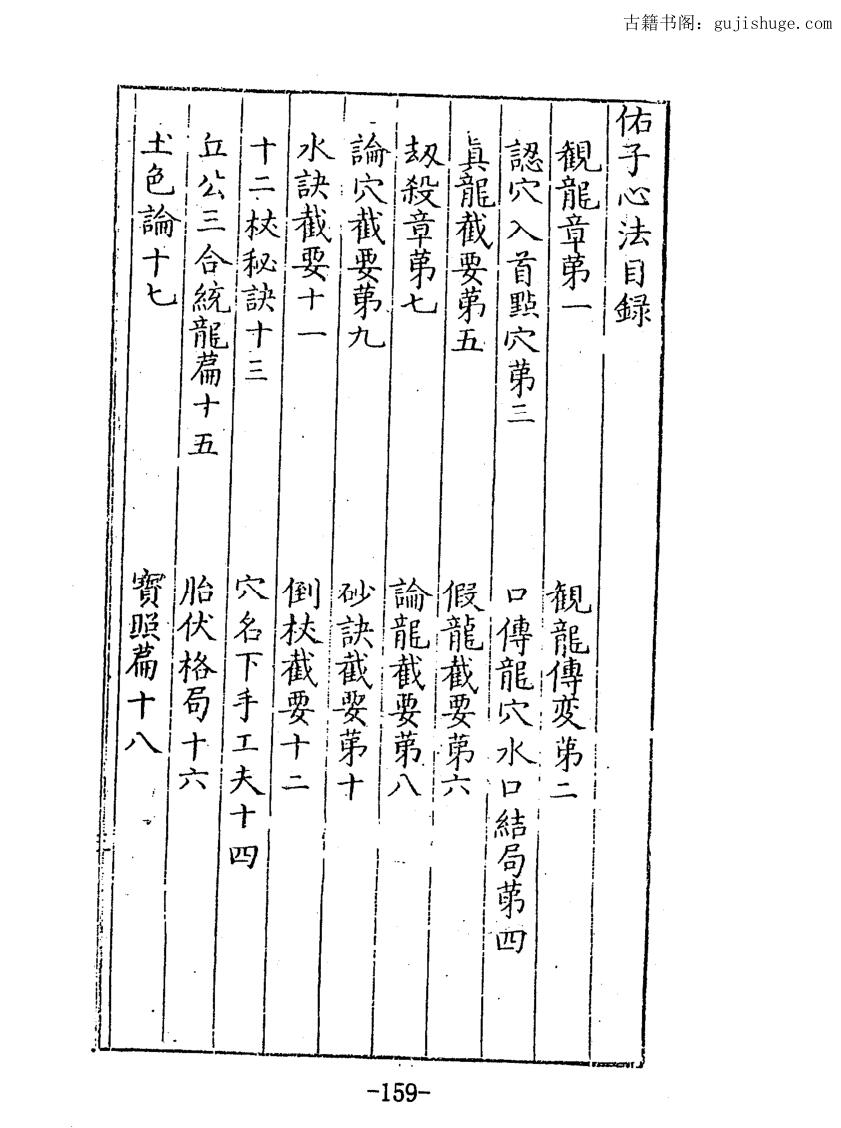 古籍书阁：gujishuge.com
佑子心法目録
観龍章苐一
観龍傳变苐二
認穴入首㸃穴苐三
口傳龍穴水口結局苐四
真龍截要苐五
假龍截要苐六
刼殺章苐七
論龍截要苐八
論穴截要苐九
砂訣截要苐十
水訣截要十一
倒杖截要十二
十二杖秘訣十三
穴名下手工夫十四
丘公三合統龍篇十五
胎伏格局十六
土色論十七
寶照篇十八
-159-